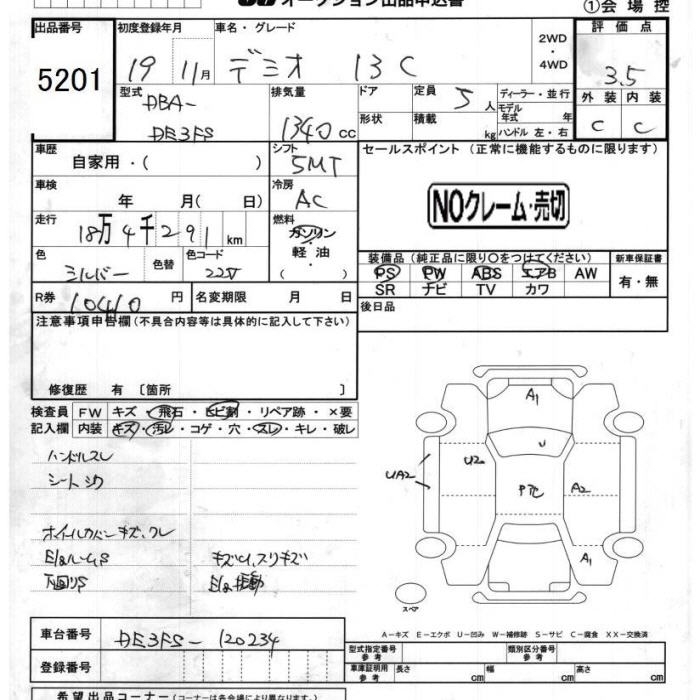 オークション出品申込書
①会場控
出品番号 初度登録年月 車名・グレード 2WD・4WD 評価点
5201 19 11月 デミオ 13C 3.5
型式 DBA-DE3FS 排気量 1340cc ドア 定員 5人 ディーラー・並行 外装 内装
形状 積載 kg モデル年式 年 ハンドル 左・右 C C
車歴 自家用・( ) シフト 5MT セールスポイント (正常に機能するものに限ります)
車検 年 月( 日) 冷房 AC
NOクレーム・売切
走行 18万4千291km 燃料 ガソリン・軽油・( )
色 シルバー 色替 色コード 22V
装備品 (純正品に限り○をつけてください) 新車保証書
PS PW ABS エアB AW 有・無
SR ナビ TV カワ
R券 10410円 名変期限 月 日 後日品
注意事項申告欄 (不具合内容等は具体的に記入して下さい)
修復歴 有 [箇所 ]
検査員 FW キズ・飛石・ヒビ割・リペア跡・×要
記入欄 内装 キズ・汚レ・コゲ・穴・スレ・キレ・破レ
ハンドルスレ
シートシワ
ホイールカバーキズ、ワレ
下回りS キズ凹、スリキズ
A1
U
UA2 U2 A2
A1
スペア
A-キズ E-エクボ U-凹み W-補修跡 S-サビ C-腐食 XX-交換済
車台番号 DE3FS-120234 型式指定番号 参考 類別区分番号 参考
登録番号 車庫証明用 参考 長さ cm 幅 cm 高さ cm
希望出品コーナー (コーナーは各会場により異なります。)